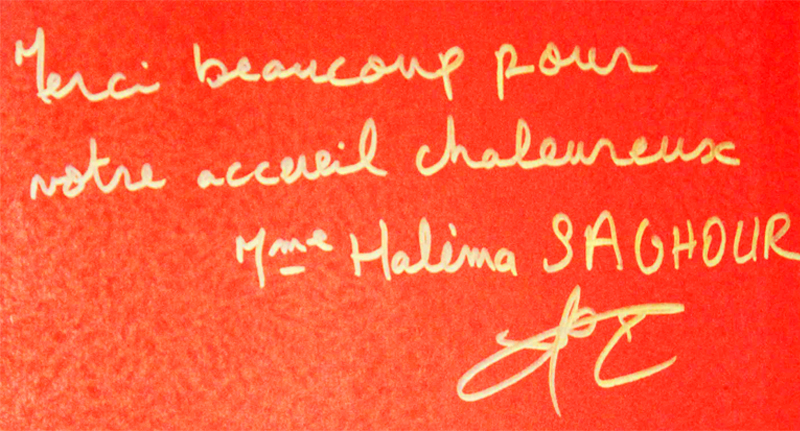 Merci beaucoup pour
votre accueil chaleureux
Mme Halima SAGHOUR